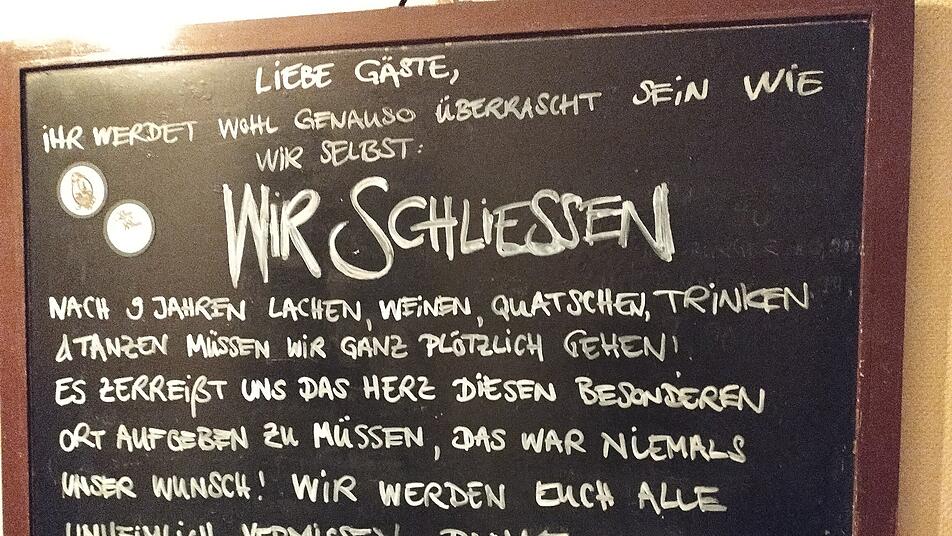 LIEBE GÄSTE,
IHR WERDET WOHL GENAUSO ÜBERRASCHT SEIN WIE
WIR SELBST:
WIR SCHLIESSEN
NACH 9 JAHREN LACHEN, WEINEN, QUATSCHEN, TRINKEN
& TANZEN MÜSSEN WIR GANZ PLÖTZLICH GEHEN!
ES ZERREIßT UNS DAS HERZ DIESEN BESONDEREN
ORT AUFGEBEN ZU MÜSSEN, DAS WAR NIEMALS
UNSER WUNSCH! WIR WERDEN EUCH ALLE
UNHEIMLICH VERMISSEN!